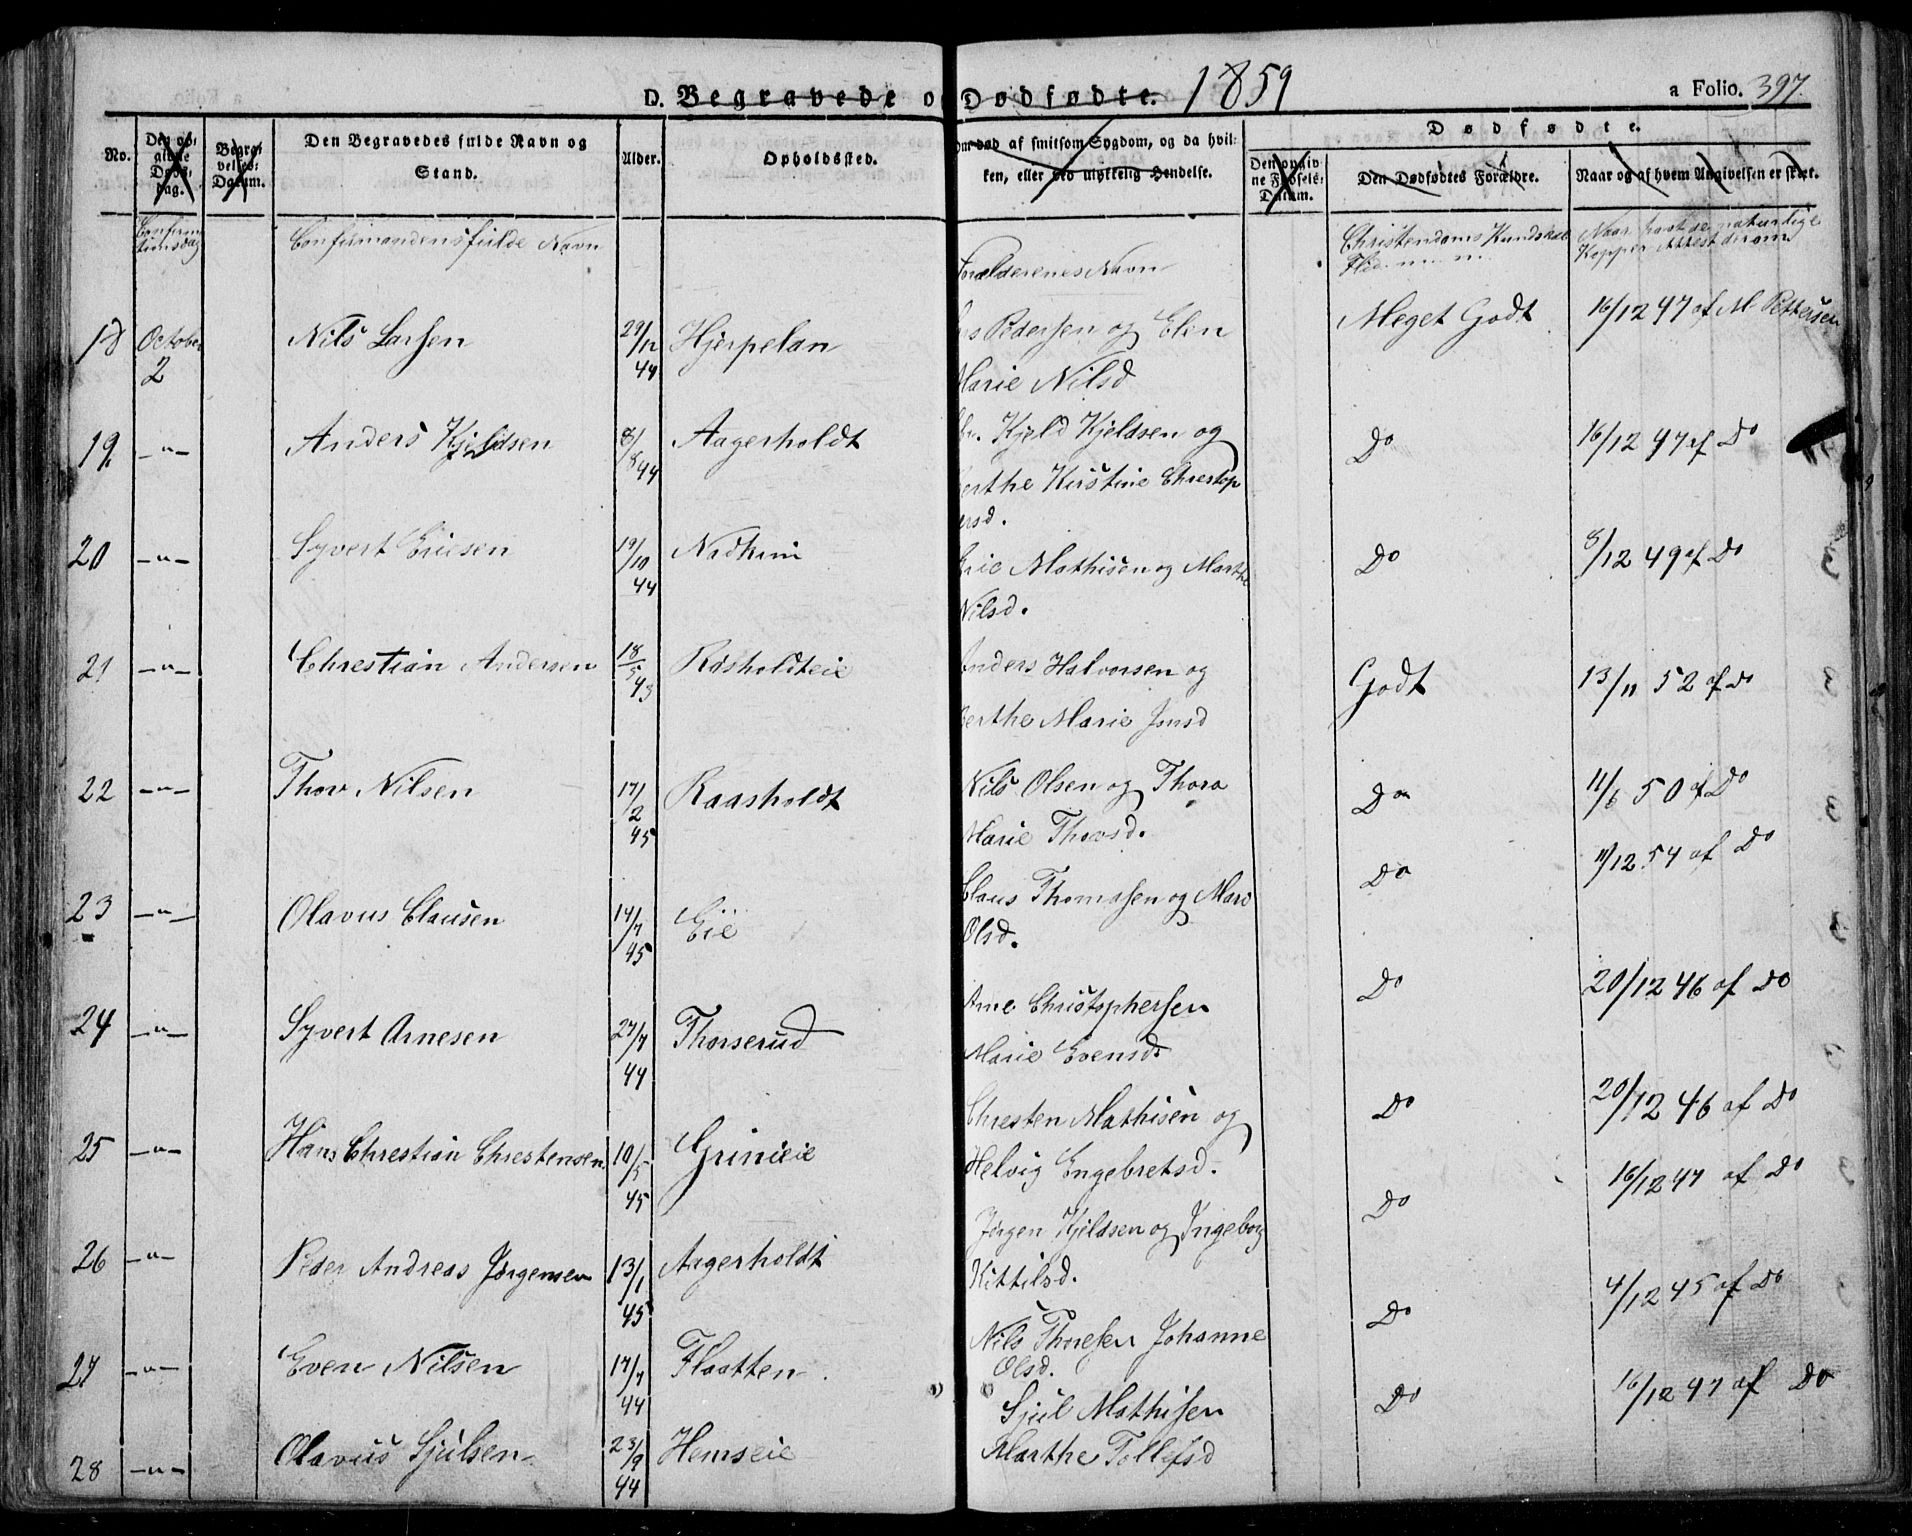 D. Begravede o Dødfødte. 1859 a Folio. 397
No. Den opgivne Døds-dag. Begravelses-Datum. Den Begravedes fulde Navn og Stand. Alder. Opholdssted. Om død af smitsom Sygdom, og da hvilken, eller ved ulykkelig Hendelse.
Dødfødte.
Den opgivne Fødsels-Datum. Den Dødfødtes Forældre. Naar og af hvem Angivelsen er skeet.
Confirmationsdag Confirmandens fulde Navn Forælderenes Navn Christendoms Kundskab Flid Naar havt de naturlige Kopper Attest derom
18 October 2 Nils Larsen 29/12 44 Hjerpelan Pedersen og Elen Meget Godt 16/12 47 af M Pettersen
Marie Nilsd
19 -"- Anders Kjeldsen 8/8 44 Aagerholdt Kjeld Kjeldsen og Do 16/12 47 af Do
Berthe Kirstine Chrestop
ersd.
20 -"- Syvert Ericsen 19/10 44 Eric Mathisen og Marthe Do 8/12 49 af Do
Nilsd.
21 -"- Chrestian Andersen 18/5 43 Rasholdteie Anders Halvorsen og Godt 13/11 52 af Do
Berthe Marie Jonsd
22 -"- Thov Nilsen 17/2 45 Raasholdt Nils Olsen og Thora Do 11/6 50 af Do
Marie Thovsd.
23 -"- Olavus Clausen 14/7 45 Eie Claus Thomasen og Mari Do 11/12 54 af Do
Olsd.
24 -"- Syvert Arnesen 27/7 44 Thorserud Arne Christophersen Do 20/12 46 af Do
Marie Evensd.
25 -"- Hans Chrestian Chrestensen 10/5 45 Grinieie Chresten Mathisen og Do 20/12 46 af Do
Helvig Engebretsd.
26 -"- Peder Andreas Jørgensen 13/1 45 Aagerholdt Jørgen Kjeldsen og Ingeborg Do 16/12 47 af Do
Kittilsd.
27 -"- Even Nilsen 17/7 44 Flaatten Nils Thoresen Johanne Do 4/12 45 af Do
Olsd.
28 -"- Olavus Sjulsen 23/9 44 Hemseie Sjul Mathisen Do 16/12 47 af Do
Marthe Tollefsd